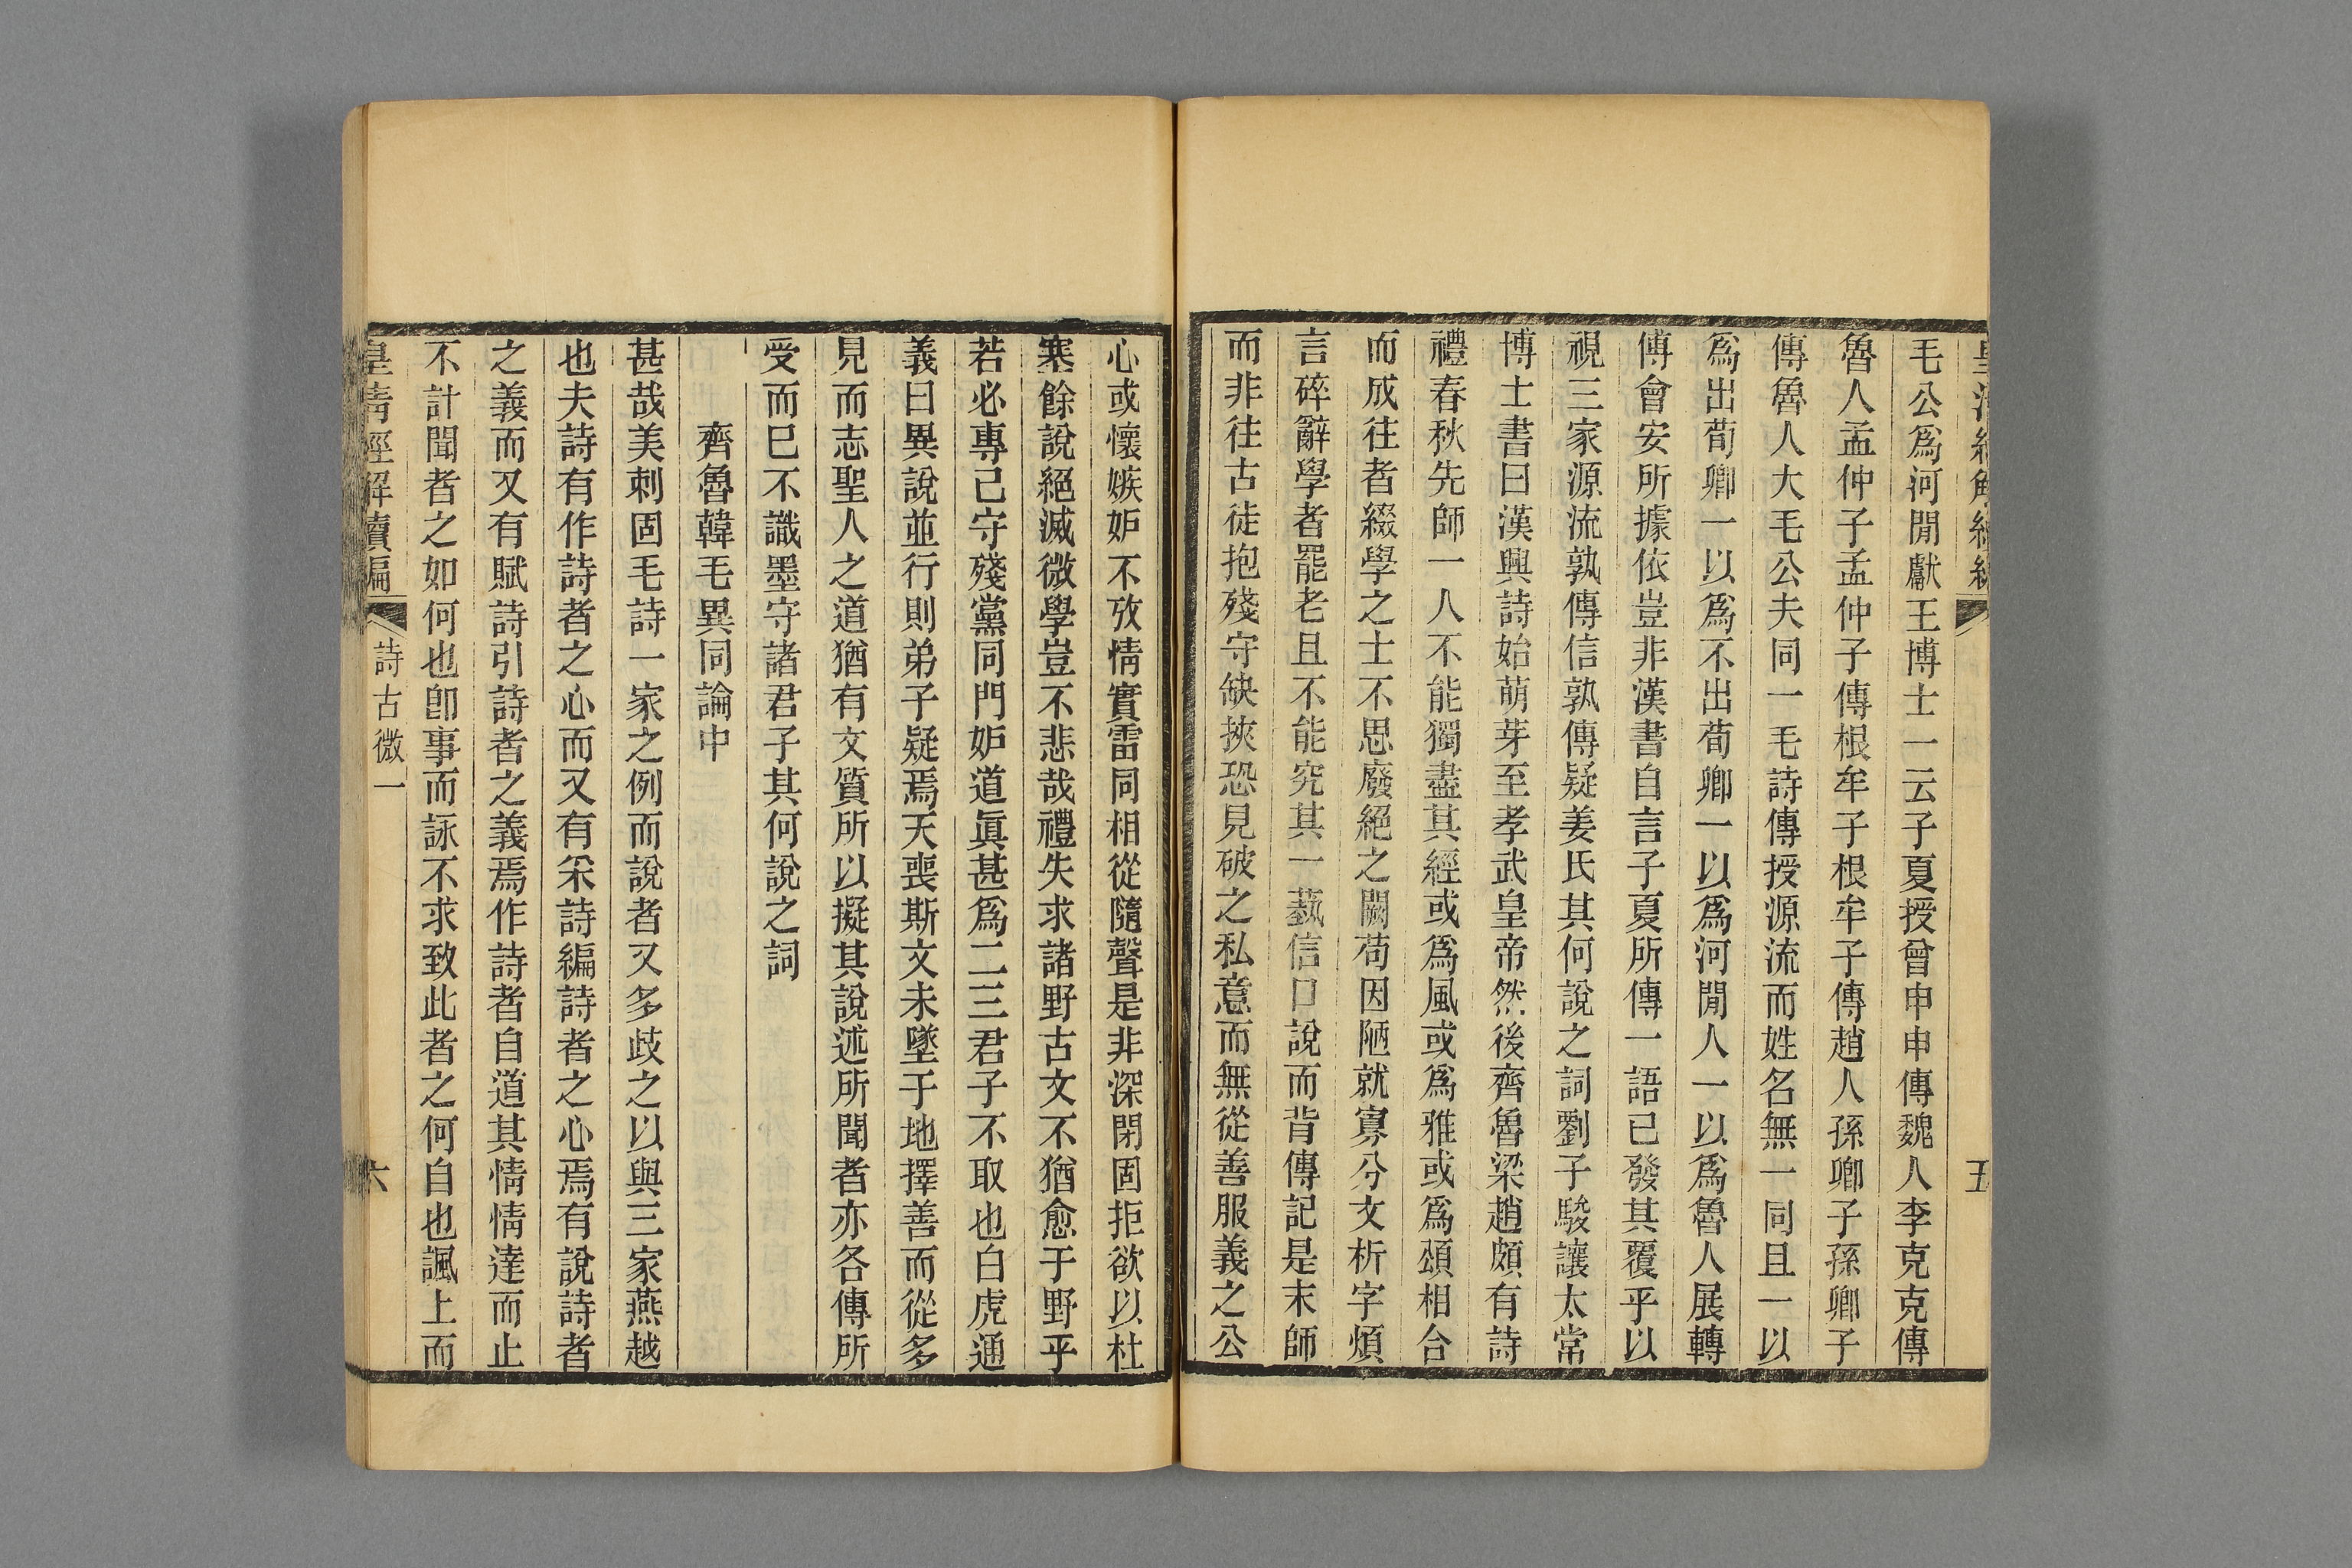 皇清經解續編
五
毛公爲河閒獻王博士一云子夏授曾申申傳魏人李克克傳
魯人孟仲子孟仲子傳根牟子根牟子傳趙人孫卿子孫卿子
傳魯人大毛公夫同一毛詩傳授源流而姓名無一同且一以
爲出荀卿一以爲不出荀卿一以爲河閒人一以爲魯人展轉
傅會安所據依豈非漢書自言子夏所傳一語已發其覆乎以
視三家源流孰傳信孰傳疑姜氏其何說之詞劉子駿讓太常
博士書曰漢興詩始萌芽至孝武皇帝然後齊魯梁趙頗有詩
禮春秋先師一人不能獨盡其經或爲風或爲雅或爲頌相合
而成往者綴學之士不思廢絕之闕苟因陋就寡分文析字煩
言碎辭學者罷老且不能究其一藝信口說而背傳記是末師
而非往古徒抱殘守缺挾恐見破之私意而無從善服義之公
心或懷嫉妒不攷情實雷同相從隨聲是非深閉固拒欲以杜
塞餘說絕滅微學豈不悲哉禮失求諸野古文不猶愈于野乎
若必專己守殘黨同門妒道眞甚爲二三君子不取也白虎通
義曰異說並行則弟子疑焉天喪斯文未墜于地擇善而從多
見而志聖人之道猶有文質所以擬其說述所聞者亦各傳所
受而巳不識墨守諸君子其何說之詞
齊魯韓毛異同論中
甚哉美刺固毛詩一家之例而說者又多歧之以與三家燕越
也夫詩有作詩者之心而又有采詩編詩者之心焉有說詩者
之義而又有賦詩引詩者之義焉作詩者自道其情情達而止
不計聞者之如何也卽事而詠不求致此者之何自也諷上而
皇清經解續編
詩古微一
六